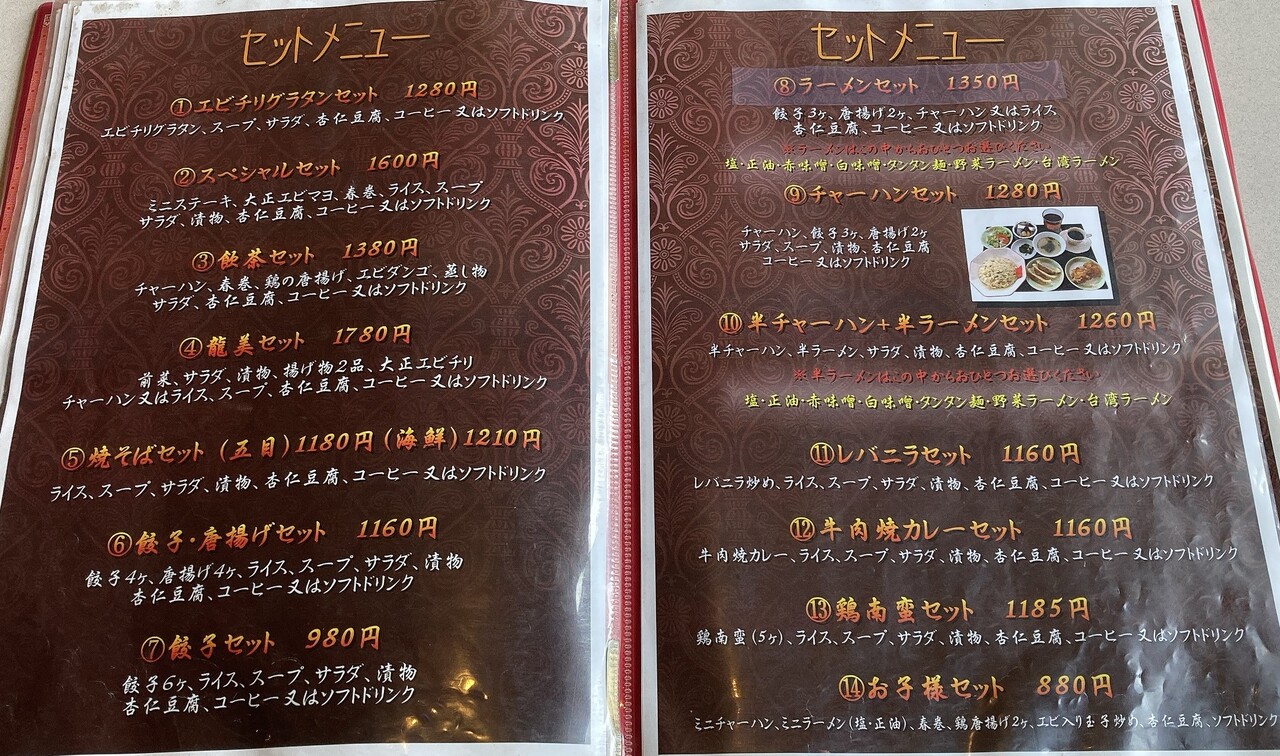 セットメニュー
①エビチリグラタンセット 1280円
エビチリグラタン、スープ、サラダ、杏仁豆腐、コーヒー又はソフトドリンク
②スペシャルセット 1600円
ミニステーキ、大正エビマヨ、春巻、ライス、スープ
サラダ、漬物、杏仁豆腐、コーヒー又はソフトドリンク
③飲茶セット 1380円
チャーハン、春巻、鶏の唐揚げ、エビダンゴ、蒸し物
サラダ、杏仁豆腐、コーヒー又はソフトドリンク
④龍美セット 1780円
前菜、サラダ、漬物、揚げ物2品、大正エビチリ
チャーハン又はライス、スープ、杏仁豆腐、コーヒー又はソフトドリンク
⑤焼そばセット (五目)1180円(海鮮)1210円
ライス、スープ、サラダ、漬物、杏仁豆腐、コーヒー又はソフトドリンク
⑥餃子・唐揚げセット 1160円
餃子4ヶ、唐揚げ4ヶ、ライス、スープ、サラダ、漬物
杏仁豆腐、コーヒー又はソフトドリンク
⑦餃子セット 980円
餃子6ヶ、ライス、スープ、サラダ、漬物
杏仁豆腐、コーヒー又はソフトドリンク
セットメニュー
⑧ラーメンセット 1350円
餃子3ヶ、唐揚げ2ヶ、チャーハン又はライス
杏仁豆腐、コーヒー又はソフトドリンク
※ラーメンはこの中からおひとつお選びください
塩・正油・赤味噌・白味噌・タンタン麺・野菜ラーメン・台湾ラーメン
⑨チャーハンセット 1280円
チャーハン、餃子3ヶ、唐揚げ2ヶ
サラダ、スープ、漬物、杏仁豆腐
コーヒー又はソフトドリンク
⑩半チャーハン+半ラーメンセット 1260円
半チャーハン、半ラーメン、サラダ、漬物、杏仁豆腐、コーヒー又はソフトドリンク
※半ラーメンはこの中からおひとつお選びください
塩・正油・赤味噌・白味噌・タンタン麺・野菜ラーメン・台湾ラーメン
⑪レバニラセット 1160円
レバニラ炒め、ライス、スープ、サラダ、漬物、杏仁豆腐、コーヒー又はソフトドリンク
⑫牛肉焼カレーセット 1160円
牛肉焼カレー、ライス、スープ、サラダ、漬物、杏仁豆腐、コーヒー又はソフトドリンク
⑬鶏南蛮セット 1185円
鶏南蛮(5ヶ)、ライス、スープ、サラダ、漬物、杏仁豆腐、コーヒー又はソフトドリンク
⑭お子様セット 880円
ミニチャーハン、ミニラーメン(塩・正油)、春巻、鶏唐揚げ2ヶ、エビ入り玉子炒め、杏仁豆腐、ソフトドリンク